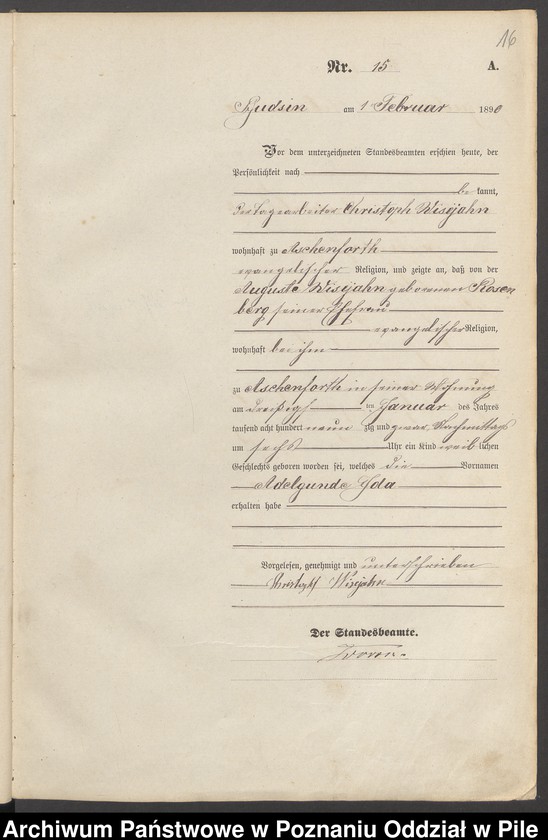 16
Nr. 15 A.
Budsin am 1 Februar 1890
Vor dem unterzeichneten Standesbeamten erschien heute, der
Persönlichkeit nach
be kannt,
Christoph Wisejahn
wohnhaft zu Aschenforth
evangelischer Religion, und zeigte an, daß von der
Auguste Wisejahn geborenen Rosen
berg seiner Ehefrau
evangelischer Religion,
wohnhaft bei ihm
zu Aschenforth in seiner Wohnung
am dreißigsten Januar des Jahres
tausend acht hundert neun zig und zwar Nachmittags
um sechs Uhr ein Kind weib lichen
Geschlechts geboren worden sei, welches die Vornamen
Adelgunde Ida
erhalten habe
Vorgelesen, genehmigt und unterschrieben
Christoph Wisejahn
Der Standesbeamte.
Archiwum Państwowe w Poznaniu Oddział w Pile